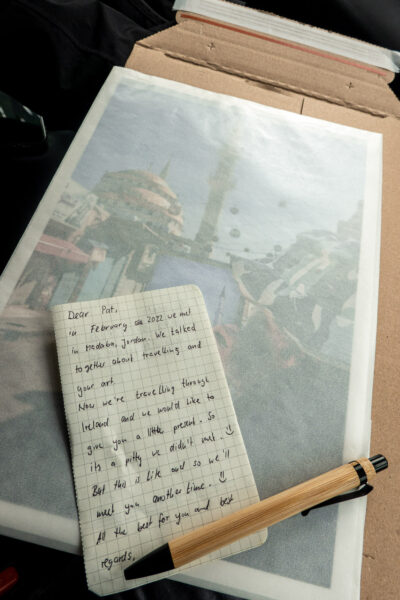 Dear Pat,
in February 2022 we met
in Madaba, Jordan. We talked
together about travelling and
your art.
Now we're travelling through
Ireland and we would like to
give you a little present. So
it's a pitty we didn't meet. :)
But this is life and so we'll
meet you another time. :)
All the best for you and best
regards,